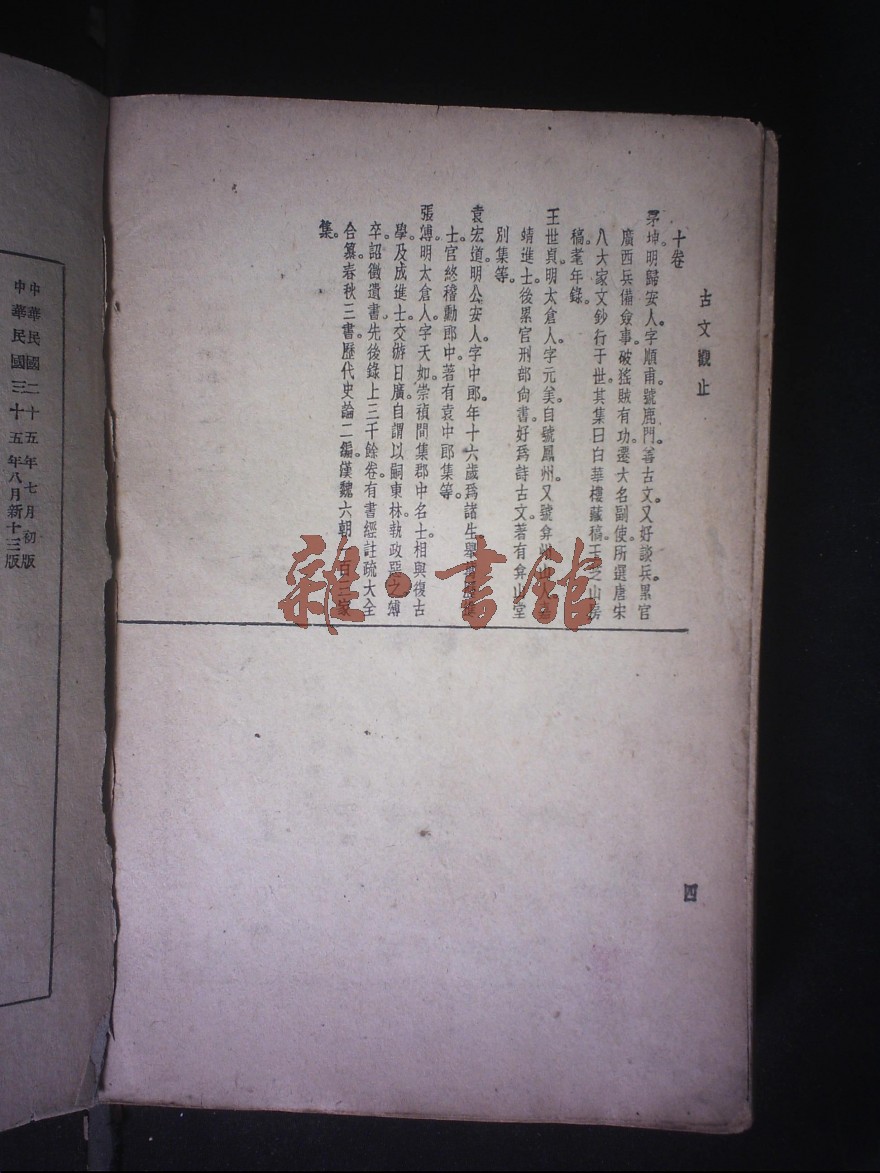 古文觀止
十卷
茅坤。明歸安人。字順甫。號鹿門。善古文。又好談兵。累官
廣西兵備僉事。破猺賊有功。遷大名副使。所選唐宋
八大家文鈔行于世。其集曰白華樓藏稿。玉芝山房
稿。耄年錄。
王世貞。明太倉人。字元美。自號鳳州。又號弇州
靖進士。後累官刑部尙書。好爲詩古文。著有弇山堂
別集等。
袁宏道。明公安人。字中郎。年十六歲爲諸生。舉
士。官終稽勳郎中。著有袁中郎集等。
張溥。明太倉人。字天如。崇禎間集郡中名士相與復古
學。及成進士。交游日廣。自謂以嗣東林。執政惡之。溥
卒。詔徵遺書。先後錄上三千餘卷。有書經註疏大全
合纂。春秋三書。歷代史論二編。漢魏六朝百三家
集。
四
中華民國二十五年七月初版
中華民國三十五年八月新十三版
雜·書館